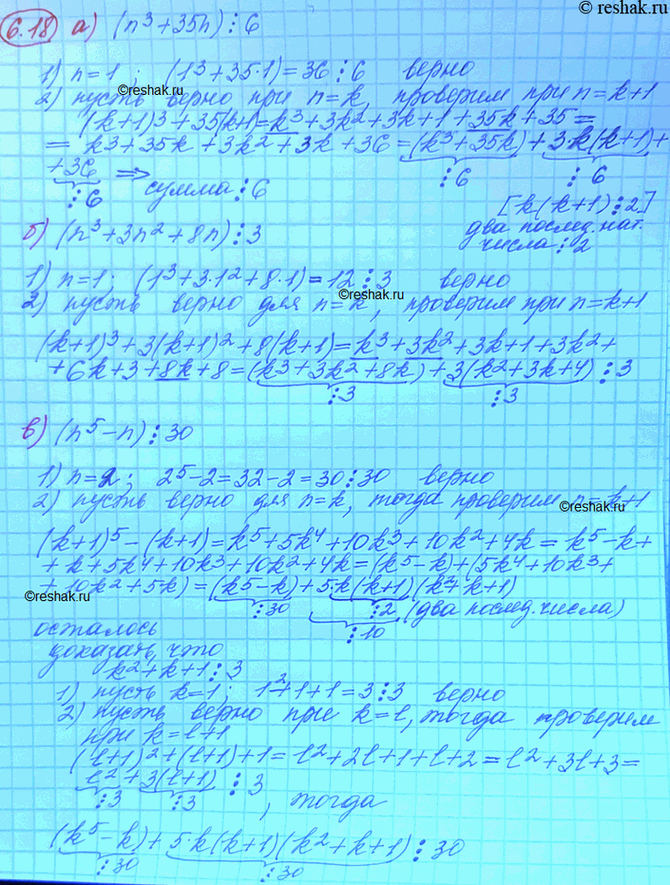 © reshak.ru
6.18 а) (n³+35n)⋮6
1) n=1; (1³+35·1)=36⋮6 верно
©reshak.ru
2) пусть верно при n=k, проверим при n=k+1
(k+1)³+35(k+1)=k³+3k²+3k+1+35k+35=
= k³+35k+3k²+3k+36=(k³+35k)+3·k(k+1)+
+36 ⋮6 ⋮6
⋮6 ⇒ сумма⋮6
[k(k+1)⋮2]
два послед. нат.
числа⋮2
б) (n³+3n²+8n)⋮3
1) n=1; (1³+3·1²+8·1)=12⋮3 верно
©reshak.ru
2) пусть верно для n=k, проверим при n=k+1
(k+1)³+3(k+1)²+8(k+1)=k³+3k²+3k+1+3k²+
+6k+3+8k+8=(k³+3k²+8k)+3(k²+3k+4)⋮3
⋮3 ⋮3
в) (n⁵-n)⋮30
1) n=2; 2⁵-2=32-2=30⋮30 верно
2) пусть верно для n=k, тогда проверим n=k+1
©reshak.ru
(k+1)⁵-(k+1)=k⁵+5k⁴+10k³+10k²+4k=k⁵-k+
+k+5k⁴+10k³+10k²+4k=(k⁵-k)+(5k⁴+10k³+
+10k²+5k)=(k⁵-k)+5k(k+1)(k²+k+1)
©reshak.ru
⋮30 ⋮2 (два послед. числа)
⋮10
осталось
доказать, что
k²+k+1⋮3
1) пусть k=1; 1²+1+1=3⋮3 верно
2) пусть верно при k=l, тогда проверим
при k=l+1
(l+1)²+(l+1)+1=l²+2l+1+l+2=l²+3l+3=
l²+3(l+1)⋮3
⋮3 ⋮3 , тогда
(k⁵-k)+5k(k+1)(k²+k+1)⋮30
⋮30 ⋮30